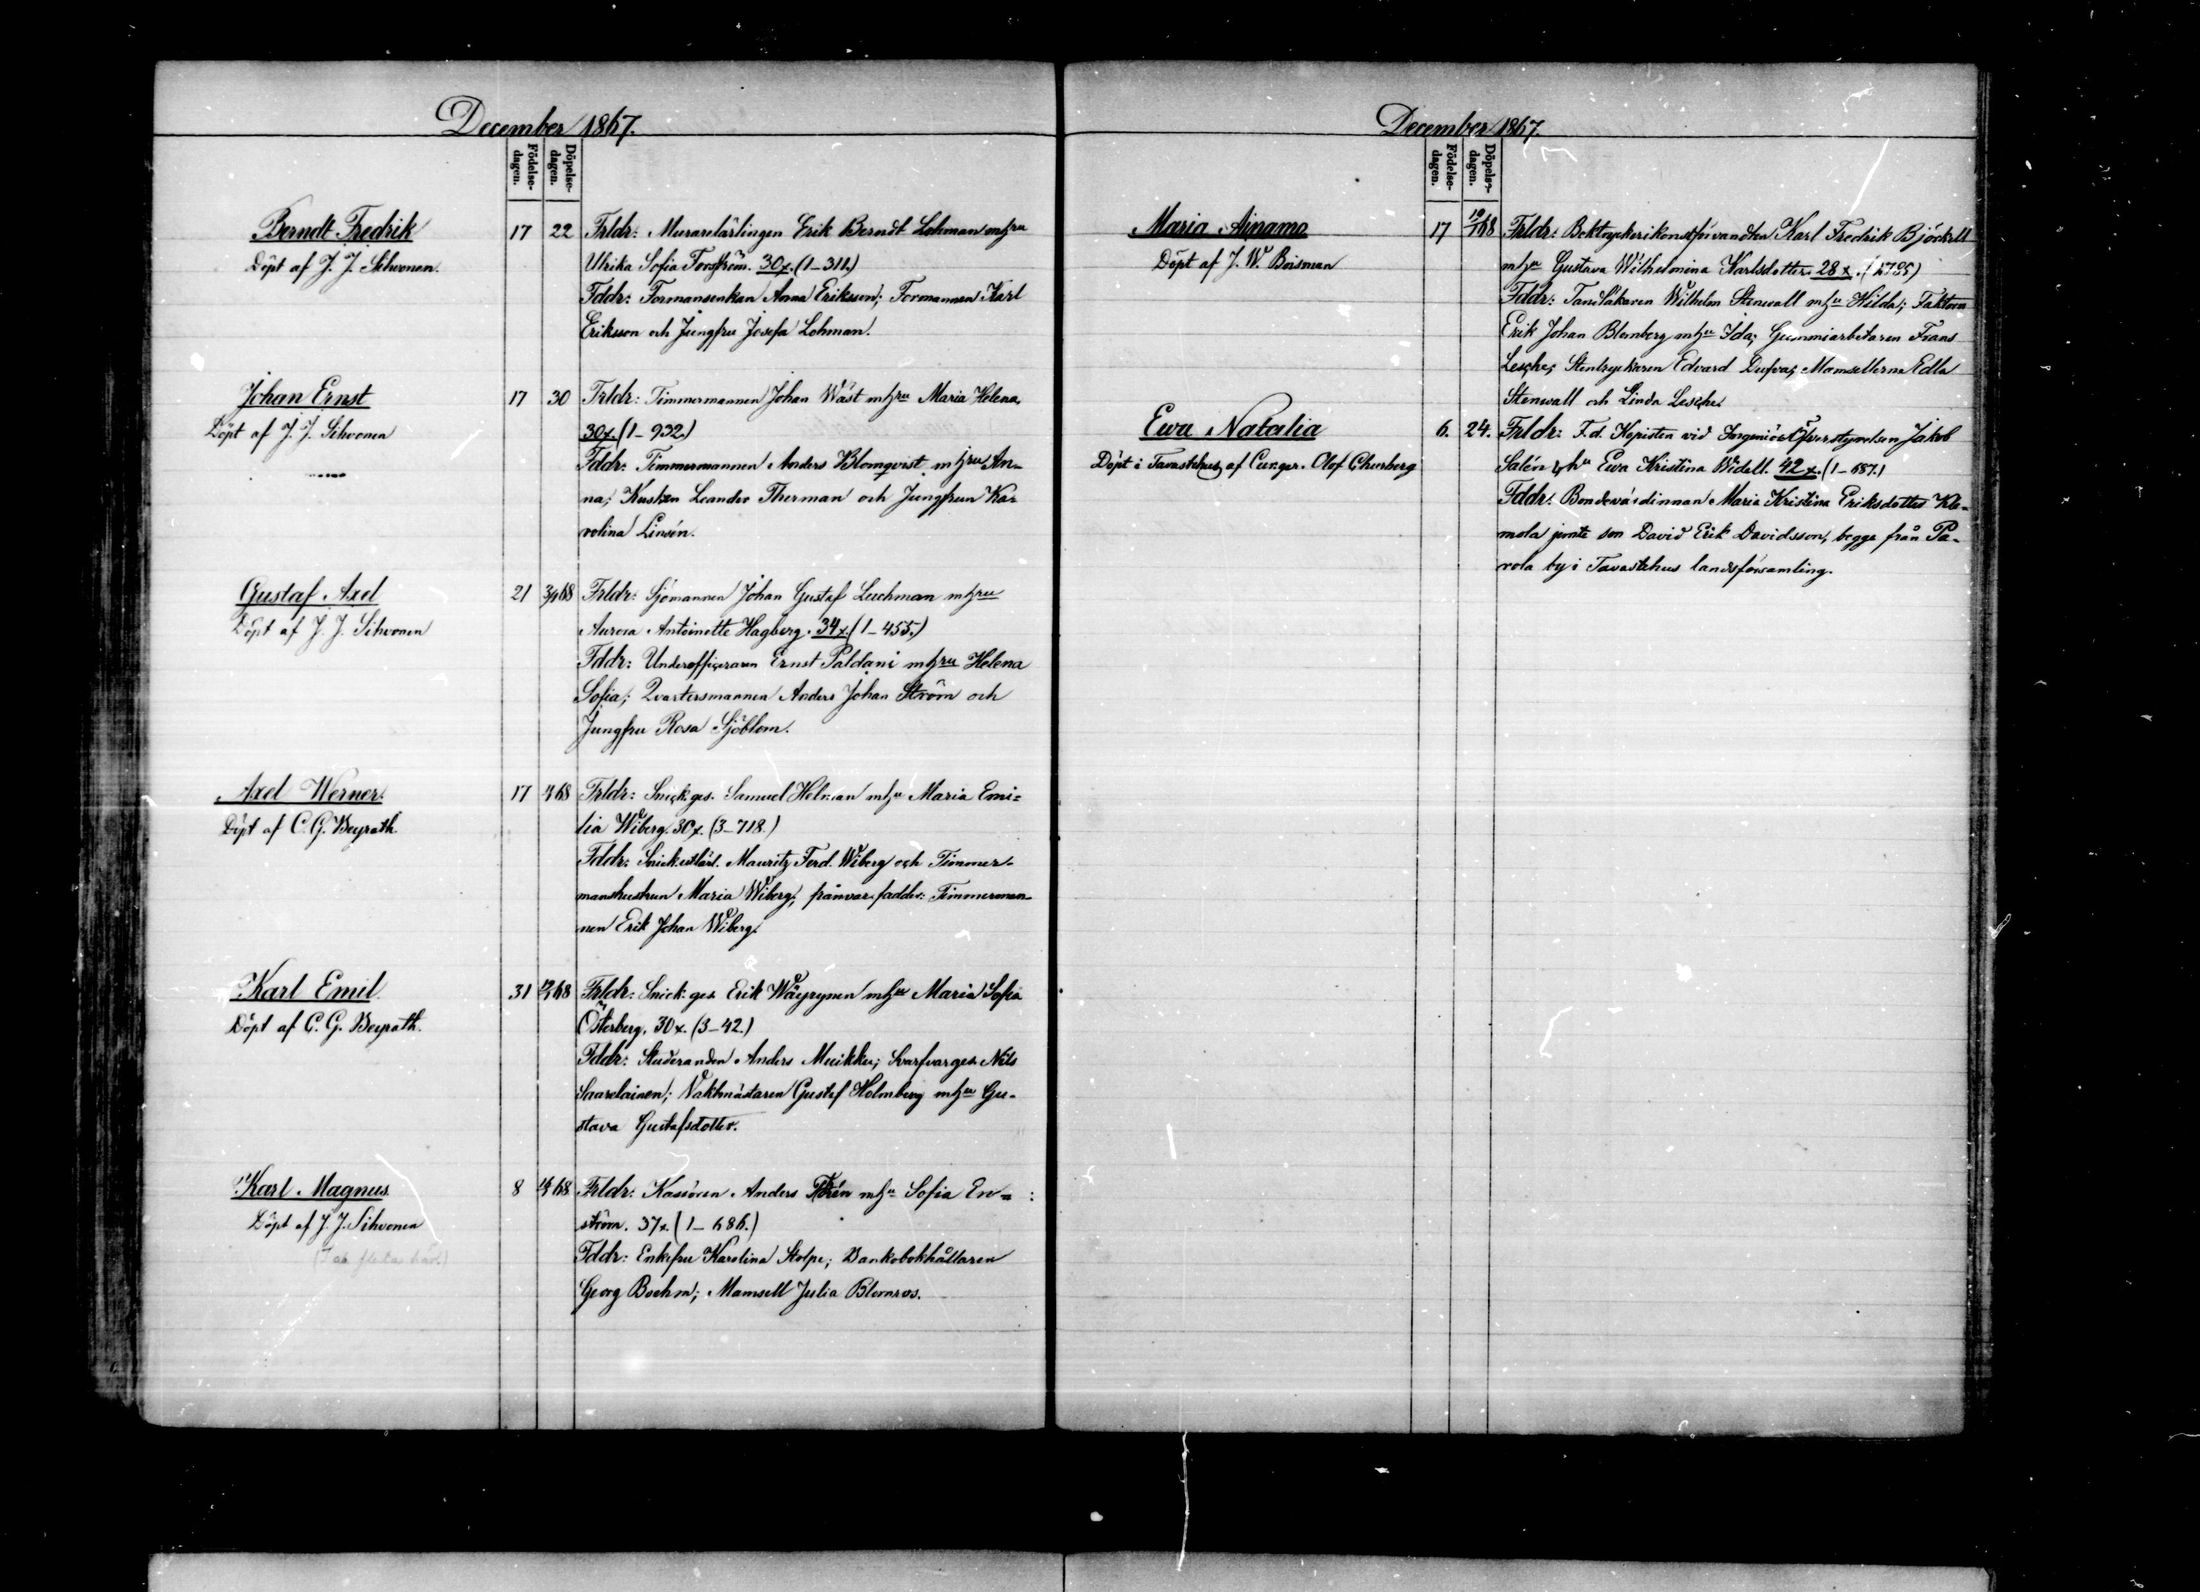 December 1867.
Födelse-
dagen.
Döpelse-
dagen.
Berndt Fredrik
Döpt af J. J. Sihvonen.
17 22
Frldr: Murarelärlingen Erik Berndt Lohman mhru
Ulrika Sofia Forsström. 30x. (1-311.)
Fddr: Formansenkan Anna Eriksson; Formannen Karl
Eriksson och Jungfru Josefa Lohman.
Johan Ernst
Döpt af J. J. Sihvonen
17 30
Frldr: Timmermannen Johan Wäst mhru Maria Helena,
30x. (1-932.)
Fddr: Timmermannen Anders Blomqvist mhru An-
na; Kusken Leander Therman och Jungfrun Ka-
rolina Linsén.
Gustaf Axel
Döpt af J. J. Sihvonen
21 3/1 68
Frldr: Sjömannen Johan Gustaf Luchman mhru
Aurora Antoinette Hagberg. 34x. (1-455.)
Fddr: Underofficeraren Ernst Paldani mhru Helena
Sofia; Qvartersmannen Anders Johan Ström och
Jungfru Rosa Sjöblom.
Axel Werner.
Döpt af C. G. Beyrath.
17 68
Frldr: Snick.ges. Samuel Helman mhu Maria Emi-
lia Wiberg. 30x. (3-718.)
Fddr: Snickarelärl. Mauritz Ferd. Wiberg och Timmer-
manshustrun Maria Wiberg; frånvar. fadder: Timmerman-
nen Erik Johan Wiberg.
Karl Emil.
Döpt af C. G. Beyrath.
31 68
Frldr: Snick. ges. Erik Wäyrynen mhu Maria Sofia
Österberg. 30x. (3-42.)
Fddr: Studeranden Anders Muikku; Svarfvarges. Nils
Saarelainen; Vaktmästaren Gustaf Holmberg mhu Gu-
stava Gustafsdotter.
Karl Magnus.
Döpt af J. J. Sihvonen
8 68
Frldr: Kassören Anders mhu Sofia En-
ström. 37x. (1-686.)
Fddr: Enkefru Karolina Stolpe; Bankobokhållaren
Georg Boehm; Mamsell Julia Blomros.
December 1867.
Födelse-
dagen.
Döpelse-
dagen.
Maria Ainamo
Döpt af J. W. Boisman
17 19/1 68
Frldr: Boktryckerikonstförvandten Karl Fredrik Björkell
mhu Gustava Wilhelmina Karlsdotter. 28x.
Fddr: Tandläkaren Wilhelm Stenwall mhu Hilda; Faktorn
Erik Johan Blomberg mhu Ida; Gummiarbetaren Frans
Lesche; Stentryckaren Edvard Dufva; Mamsellerna Edla
Stenwall och Linda Lesche.
Ewa Natalia
Döpt i Tavastehus af Cur.ger. Olof Churberg
6. 24.
Frldr: F.d. Kopisten vid Ingeniörs Öfverstyrelsen Jakob
Salén & hu Ewa Kristina Widell. 42x. (1-687.)
Fddr: Bondevärdinnan Maria Kristina Eriksdotter Kle-
mola jemte son David Erik Davidsson, begge från Pa-
rola by i Tavastehus landsförsamling.